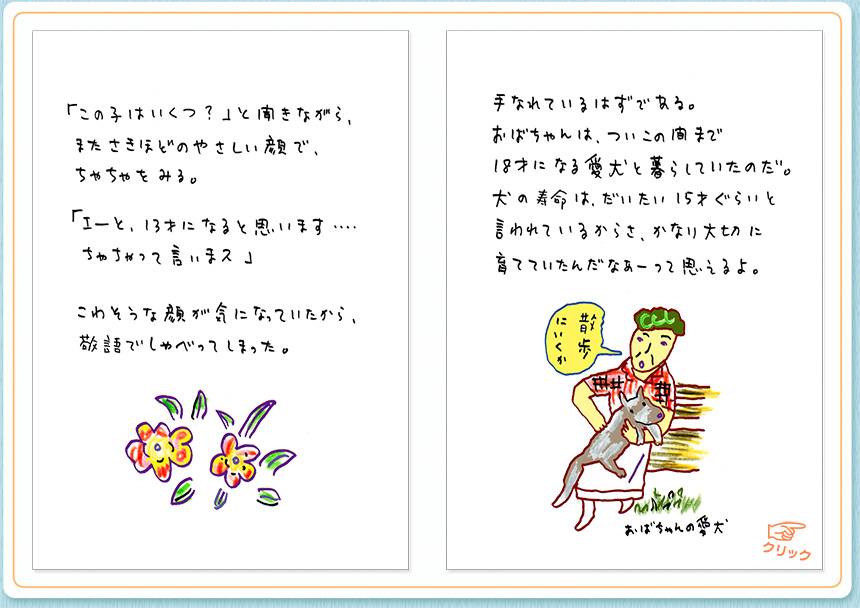 「この子はいくつ？」と聞きながら、
またさきほどのやさしい顔で、
ちゃちゃをみる。
「エーと、13才になると思います‥‥
ちゃちゃって言いまス」
こわそうな顔が気になっていたから、
敬語でしゃべってしまった。
手なれているはずである。
おばちゃんは、ついこの間まで
18才になる愛犬と暮らしていたのだ。
犬の寿命は、だいたい15才ぐらいと
言われているからさ、かなり大切に
育てていたんだなあーって思えるよ。
散歩
にいくか
おばちゃんの愛犬
クリック